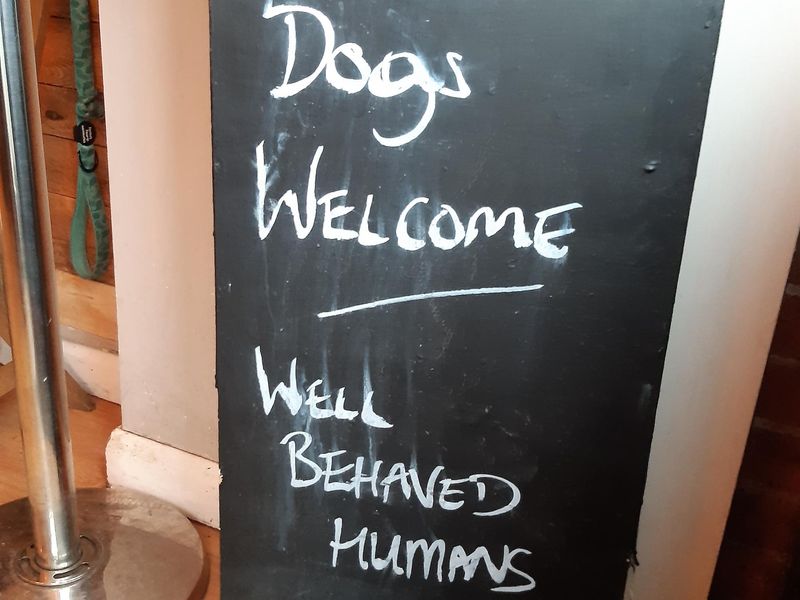 Dogs
WELCOME
WELL
BEHAVED
HUMANS